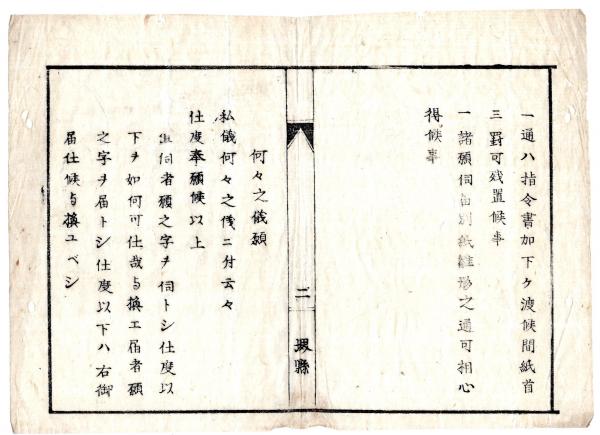 一通ハ指令書加下ケ渡候間紙首
三罫可残置候事
一諸願伺届別紙雛形之通可相心
得候事
二
堺縣
何々之儀願
私儀何々之儀ニ付云々
仕度奉願候以上
但伺者願之字ヲ伺トシ仕度以
下ヲ如何可仕哉与換エ届者願
之字ヲ届トシ仕度以下ハ右御
届仕候与換ユベシ